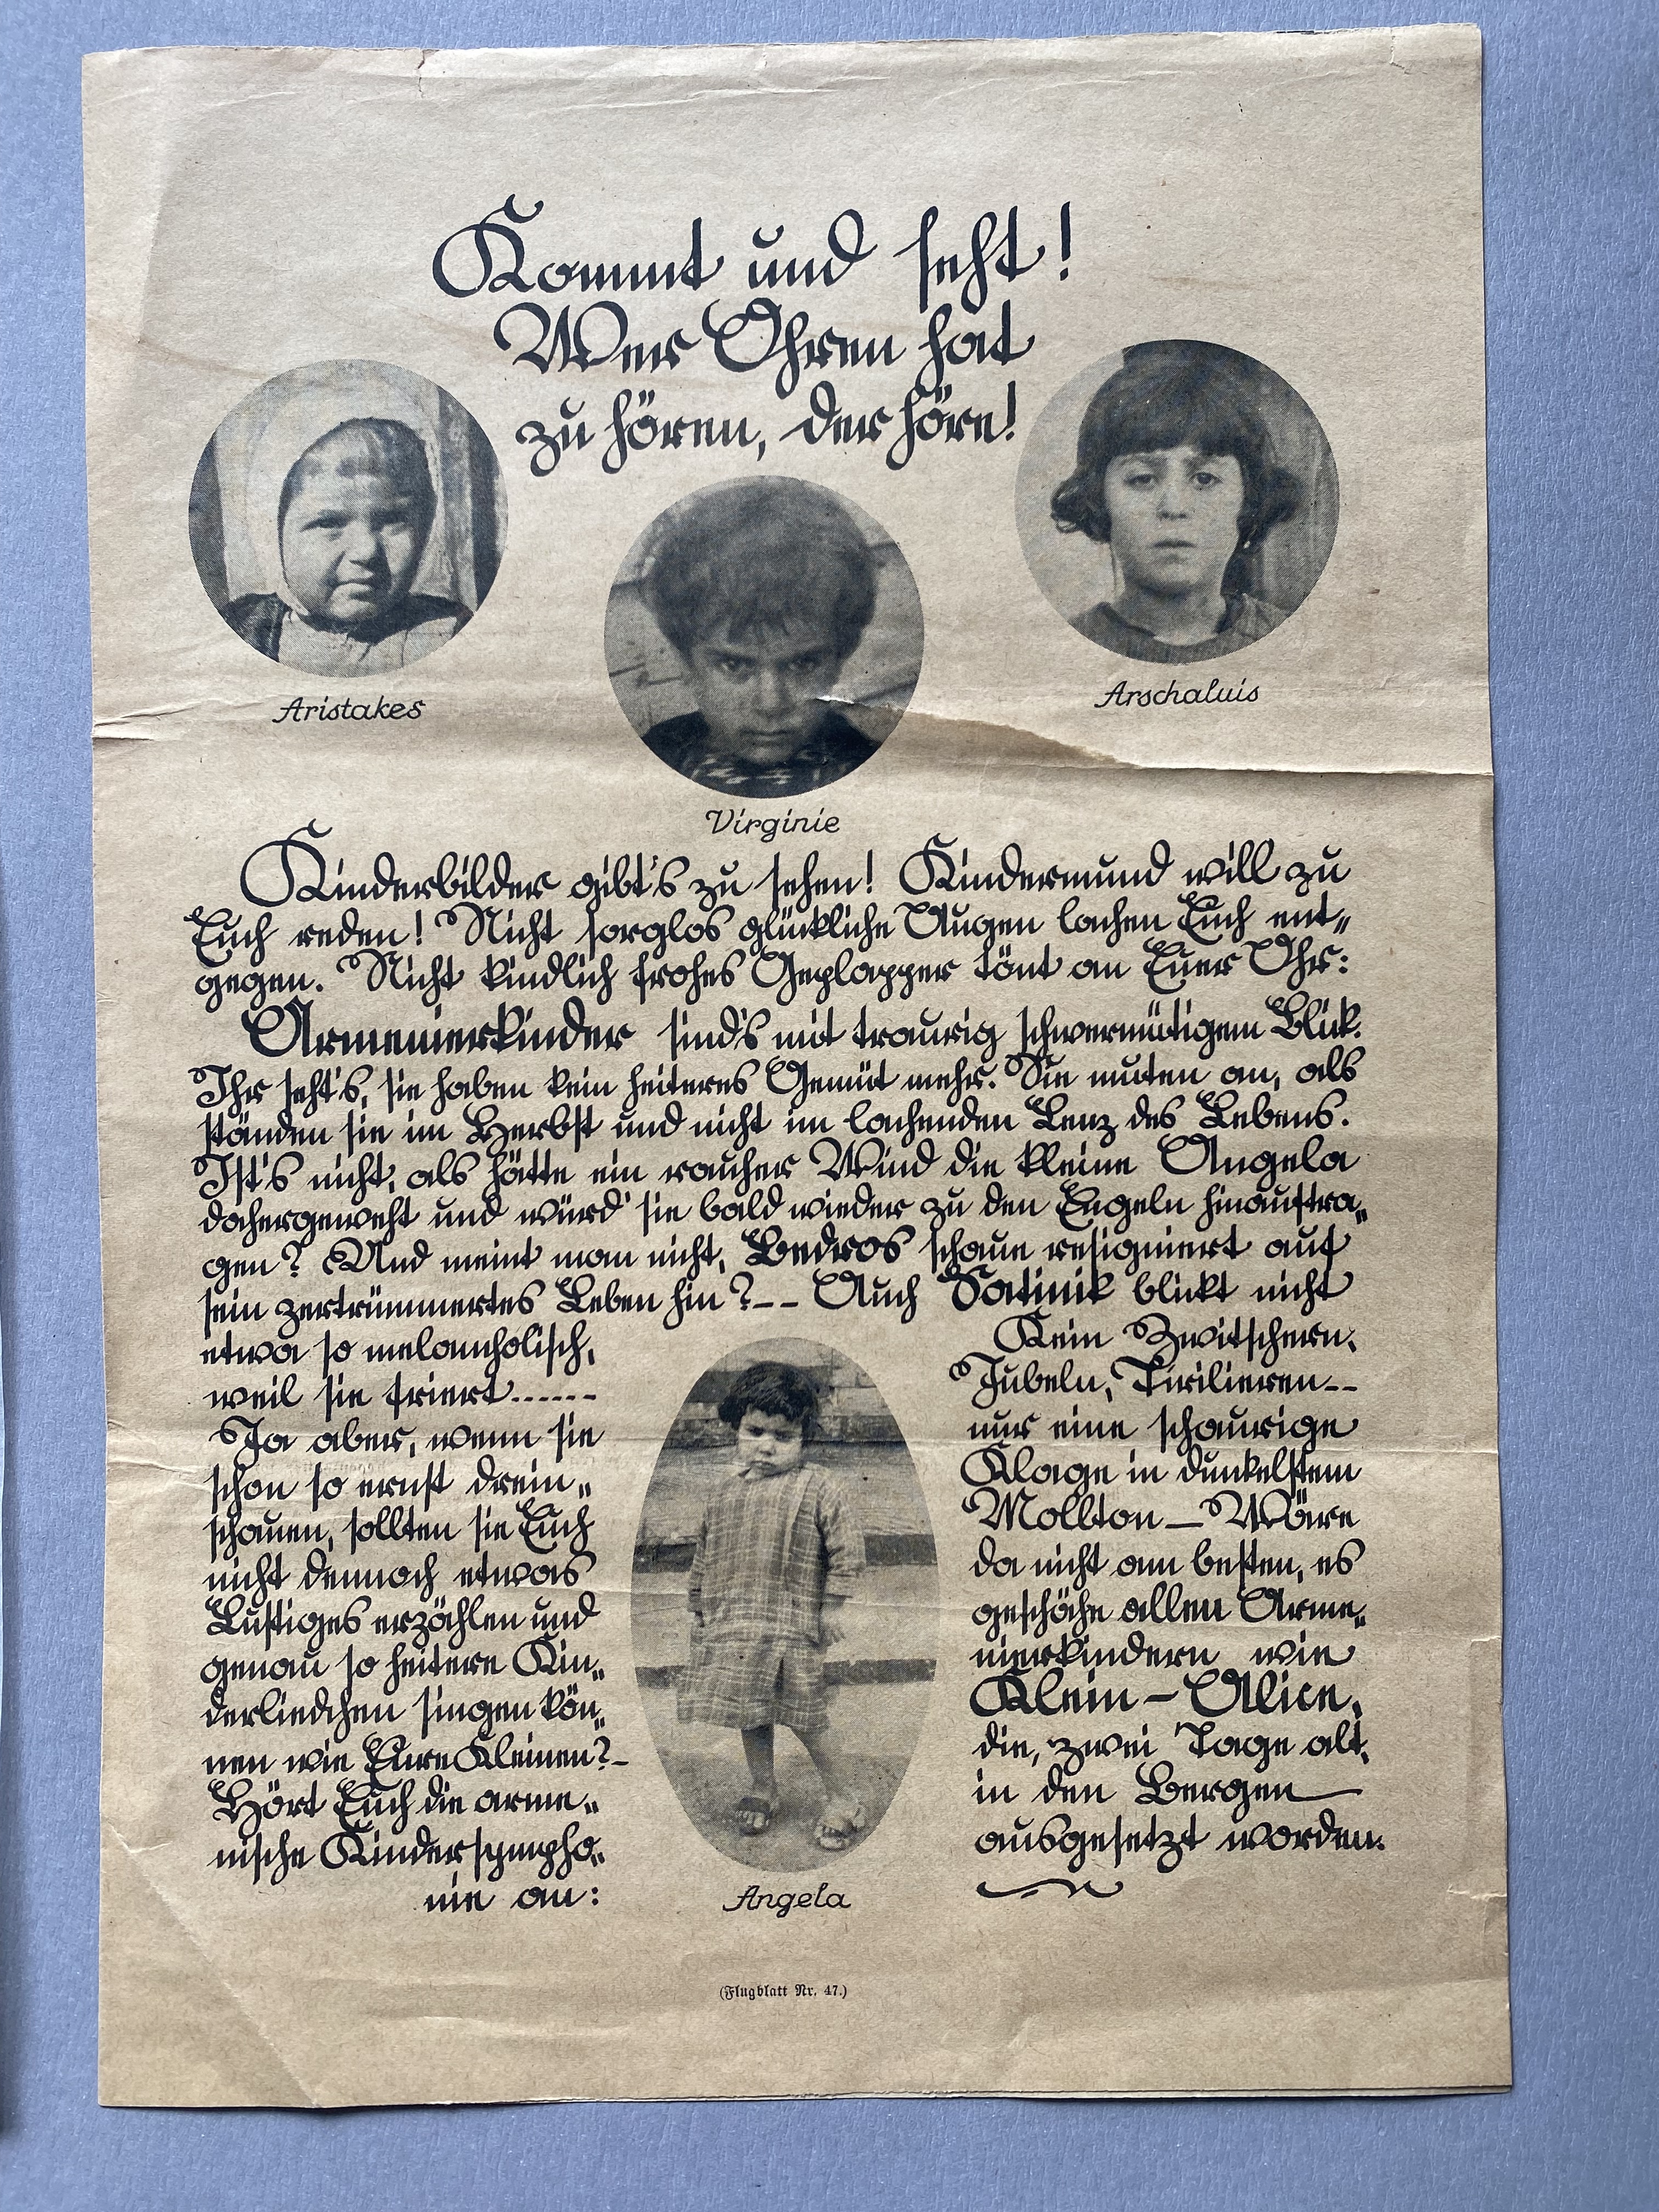 Kommt und seht!
Wer Ohren hat
zu hören, der höre!
Aristakes
Arschaluis
Virginie
Kinderbilder gibt's zu sehen! Kindermund will zu
Euch reden! Nicht sorglos glückliche Augen lachen Euch ent-
gegen. Nicht kindlich frohes Geplapper tönt an Euer Ohr:
Armenierkinder sind's mit traurig schwermütigem Blick.
Ihr seht's, sie haben kein heiteres Gemüt mehr. Sie muten an, als
ständen sie im Herbst und nicht im lachenden Lenz des Lebens.
Ist's nicht, als hätte ein rauher Wind die kleine Angela
dahergeweht und würd' sie bald wieder zu den Engeln hinauftra-
gen? Und meint man nicht, Bedros schaue resigniert auf
sein zertrümmertes Leben hin?-- Auch Satinik blickt nicht
etwa so melancholisch,
weil sie friert......
Ja aber, wenn sie
schon so ernst drein-
schauen, sollten sie Euch
nicht dennoch etwas
Lustiges erzählen und
genau so heitere Kin-
derliedchen singen kön-
nen wie Eure Kleinen?-
Hört Euch die arme-
nische Kindersympho-
nie an:
Kein Zwitschern,
Jubeln, Tirilieren--
nur eine schaurige
Klage in dunkelstem
Mollton — Wäre
da nicht am besten, es
geschähe allen Arme-
nierkindern wie
Klein-Alice,
die, zwei Tage alt,
in den Bergen
ausgesetzt worden.
Angela
(Flugblatt Nr. 47.)